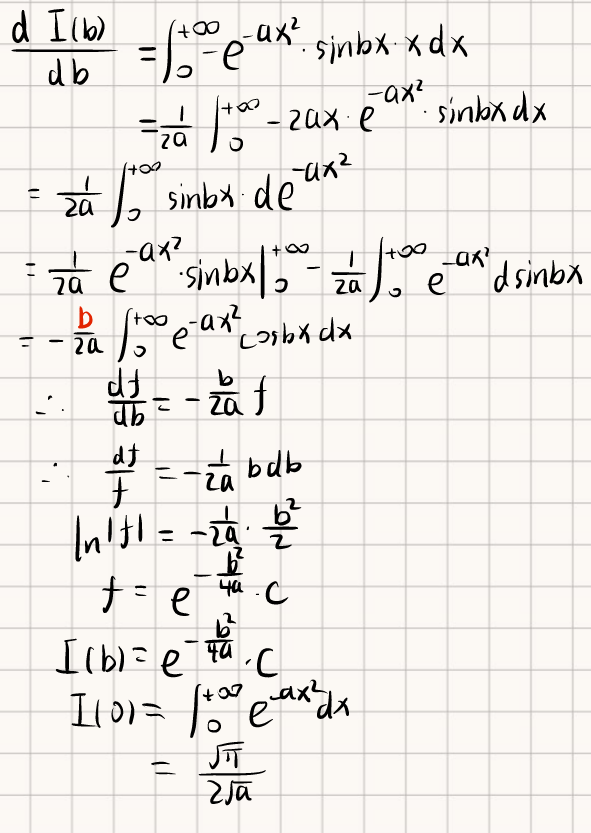 d I(b)/db = ∫₀^{+∞} -e^{-ax²} · sinbx · x dx
= 1/2a ∫₀^{+∞} -2ax · e^{-ax²} · sinbx dx
= 1/2a ∫₀^{+∞} sinbx · de^{-ax²}
= 1/2a e^{-ax²} · sinbx |₀^{+∞} - 1/2a ∫₀^{+∞} e^{-ax²} d sinbx
= - b/2a ∫₀^{+∞} e^{-ax²} cosbx dx
∴ df/db = - b/2a f
∴ df/f = - 1/2a b db
ln|f| = - 1/2a · b²/2
f = e^{-b²/4a} · C
I(b) = e^{-b²/4a} · C
I(0) = ∫₀^{+∞} e^{-ax²} dx
= √π/2√a